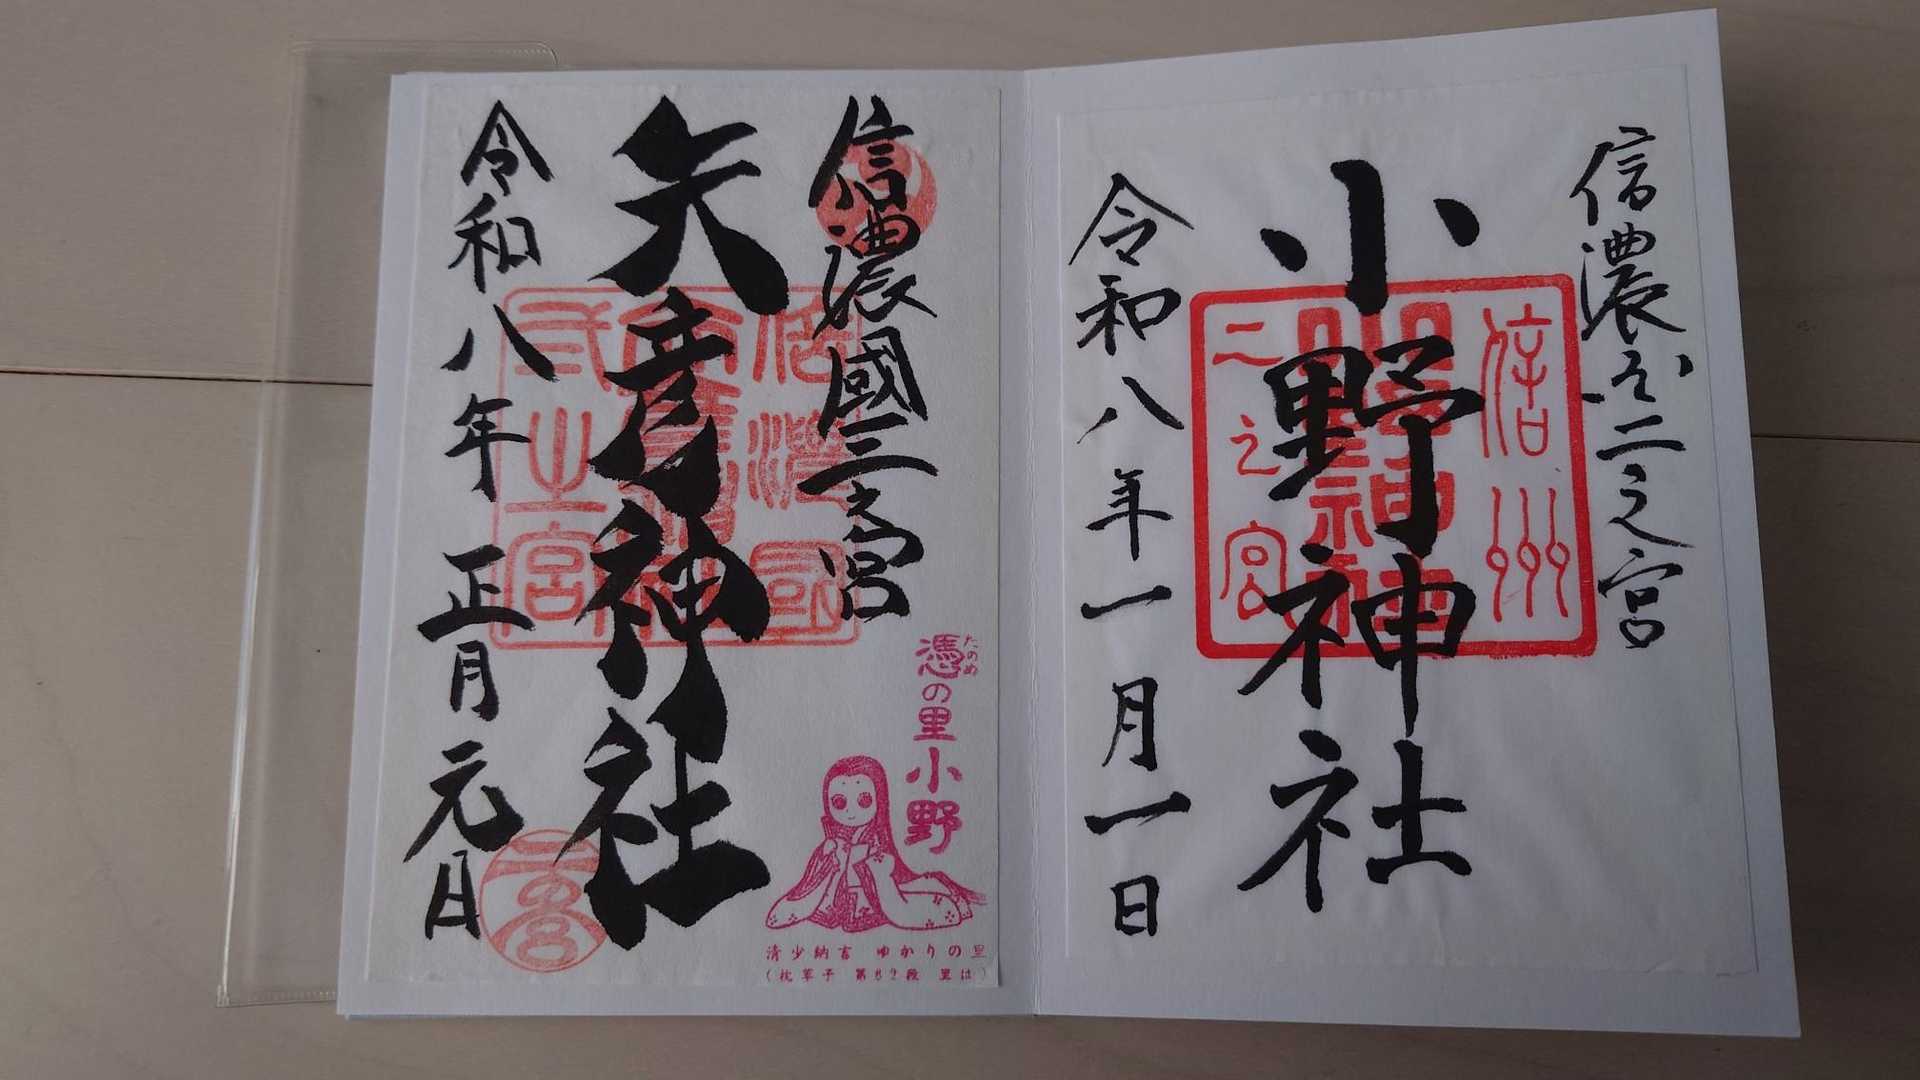 信濃国二之宮
小野神社
信州
二之宮
令和八年一月一日
信濃國二之宮
矢彦神社
信濃國
弐之宮
令和八年正月元日
二の宮
たのめ
憑の里小野
清少納言 ゆかりの里
(枕草子 第62段 里は)